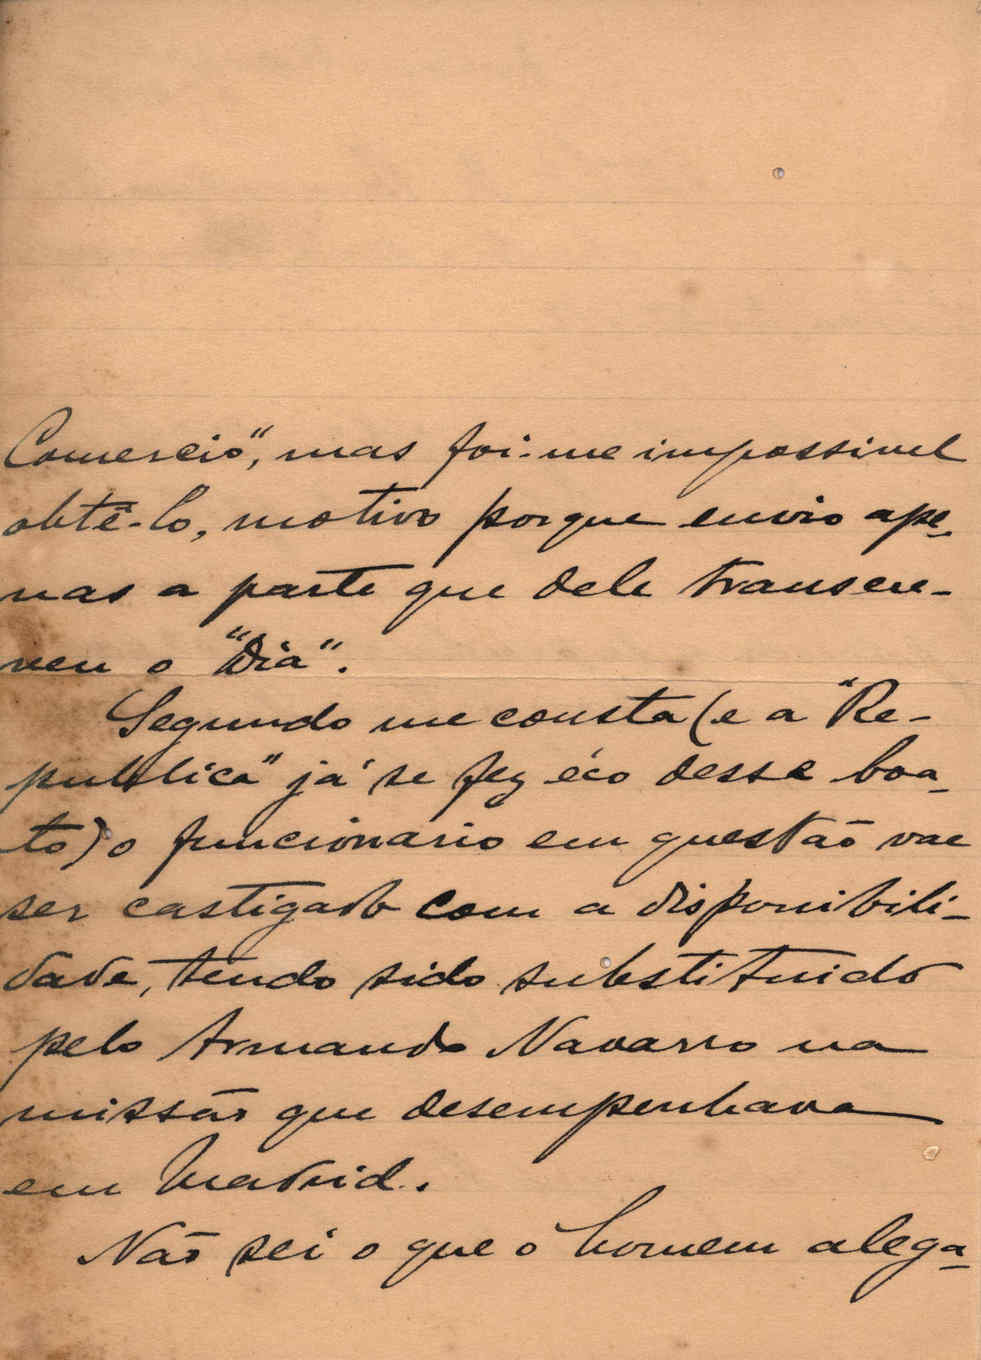 Comercio", mas foi-me impossivel
obtê-lo, motivo porque envio ape-
nas a parte que dele transcre-
veu o "Dia".
Segundo me consta (e a "Re-
publica" já se fez éco desse boa-
to) o funcionario em questão vae
ser castigado com a disponibili-
dade, tendo sido substituido
pelo Armando Navarro na
missão que desempenhava
em Madrid.
Não sei o que o homem alega-